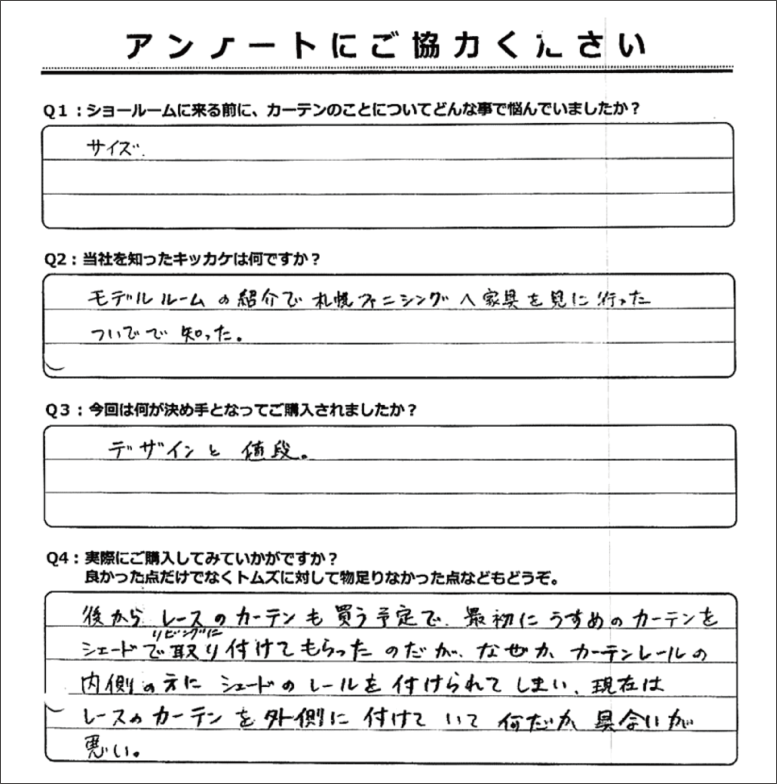 アンケートにご協力ください
Q1：ショールームに来る前に、カーテンのことについてどんな事で悩んでいましたか？
サイズ.
Q2：当社を知ったキッカケは何ですか？
モデルルームの紹介で札幌ファニシングへ家具を見に行った
ついでで知った。
Q3：今回は何が決め手となってご購入されましたか？
デザインと値段。
Q4：実際にご購入してみていかがですか？
良かった点だけでなくトムズに対して物足りなかった点などもどうぞ。
後からレースのカーテンも買う予定で、最初にうすめのカーテンを
リビングに
シェードで取り付けてもらったのだが、なぜか、カーテンレールの
内側の方にシェードのレールを付けられてしまい、現在は
レースのカーテンを外側に付けていて何だか具合いが
悪い。